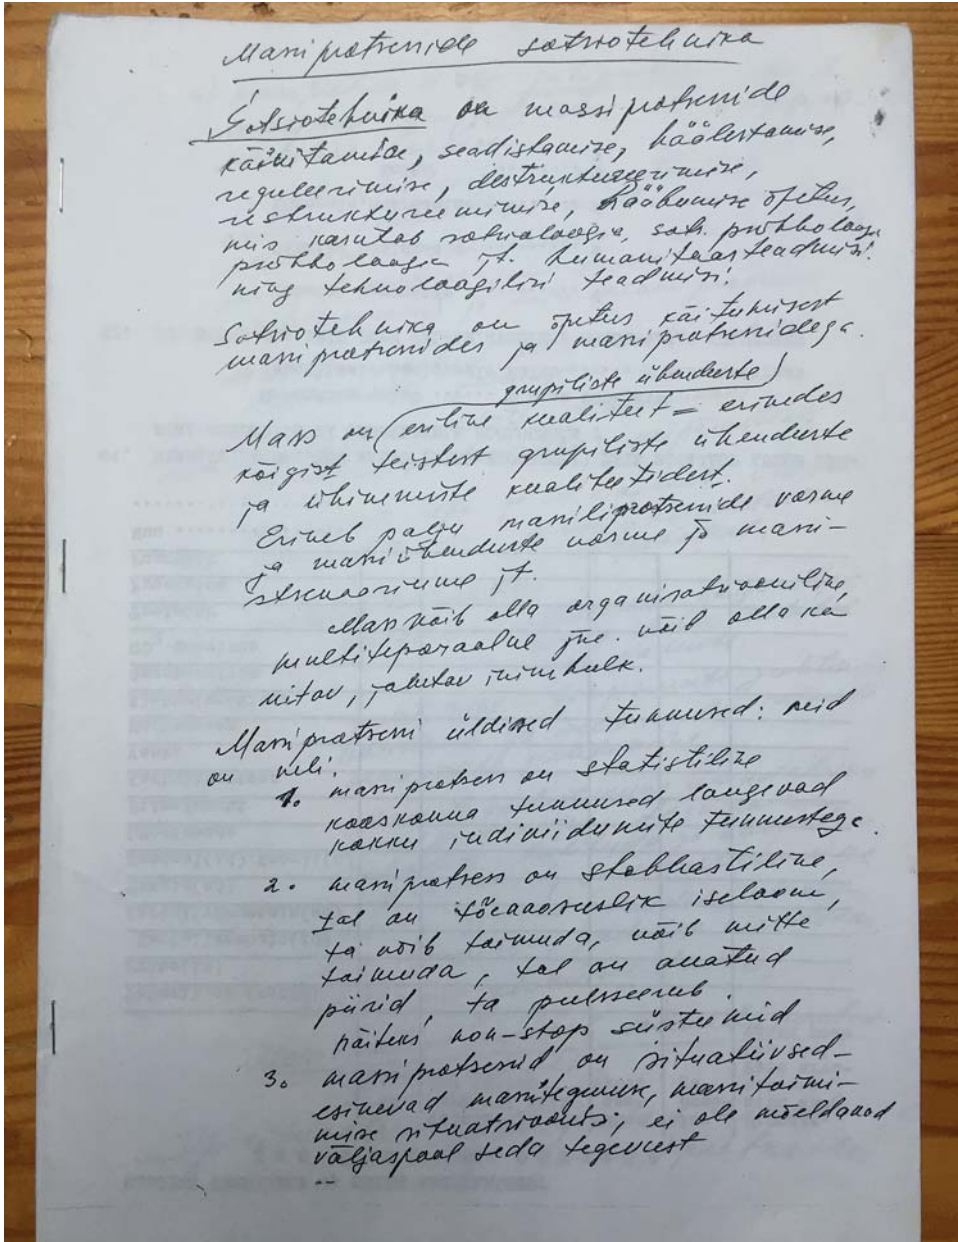 Massiprotsesside sotsiotehnika
Sotsiotehnika on massiprotsesside
käivitamise, seadistamise, häälestamise,
reguleerimise, destruktureerimise,
restruktureerimise, hääbumise õpetus,
mis kasutab sotsioloogia, sots. psühholoogia
psühholoogia jt. humanitaarteadmisi
ning tehnoloogilisi teadmisi.
Sotsiotehnika on õpetus käitumisest
massiprotsessides ja massiprotsessidega.
grupiliste ühenduste
Mass on eriline kvaliteet – erinedes
kõigist teistest grupiliste ühenduste
ja ühinemiste kvaliteetidest.
Erineb palju massiliprotsesside vorme
ja massiühenduste vorme ja massi-
stsenaariume jt.
Mass võib olla organisatsiooniline,
multiteporaalne jne. võib olla ka
uitav, jalutav inimhulk.
Massiprotsessi üldised tunnused: neid
on neli.
1. massiprotsess on statistiline
kooskonna tunnused langevad
kokku indiviidumite tunnustega.
2. massiprotsess on stohhastiline,
tal on tõenäosuslik iseloom,
ta võib toimuda, võib mitte
toimuda, tal on avatud
piirid, ta pulseerub.
näiteks non-stop süsteemid
3. massiprotsessid on situatiivsed –
esinevad massitegevuse, massitoimi-
mise situatsioonis, ei ole mõeldavad
väljaspool seda tegevust
--